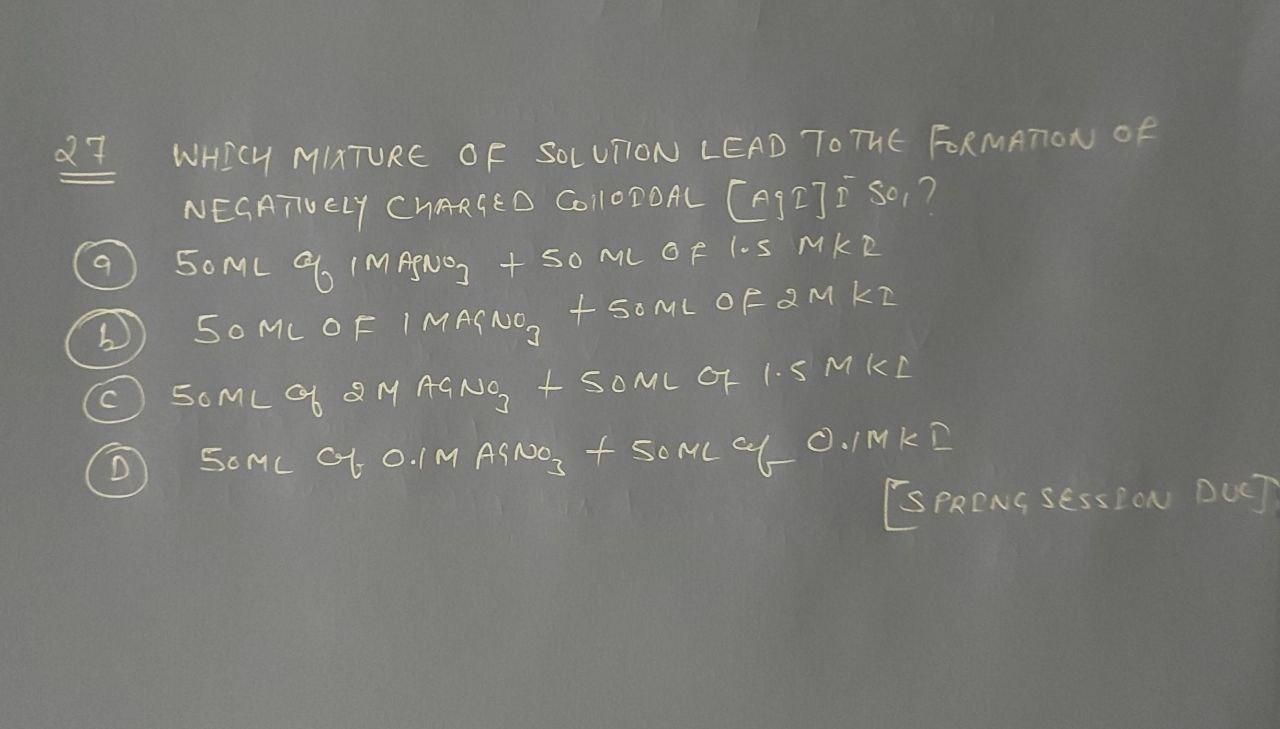 27 WHICH MIXTURE OF SOLUTION LEAD TO THE FORMATION OF
NEGATIVELY CHARGED COllOIDAL [AgI]I⁻ SOl?
a 50ML of 1M AgNO₃ + 50 ML OF 1.5 MKI
b 50 ML OF 1 MAGNO₃ + 50ML OF 2M KI
c 50ML of 2M AGNO₃ + 50ML Of 1.5 M KI
D 50ML Of 0.1M AGNO₃ + 50ML of 0.1M KI
[SPRING SESSION DUE]